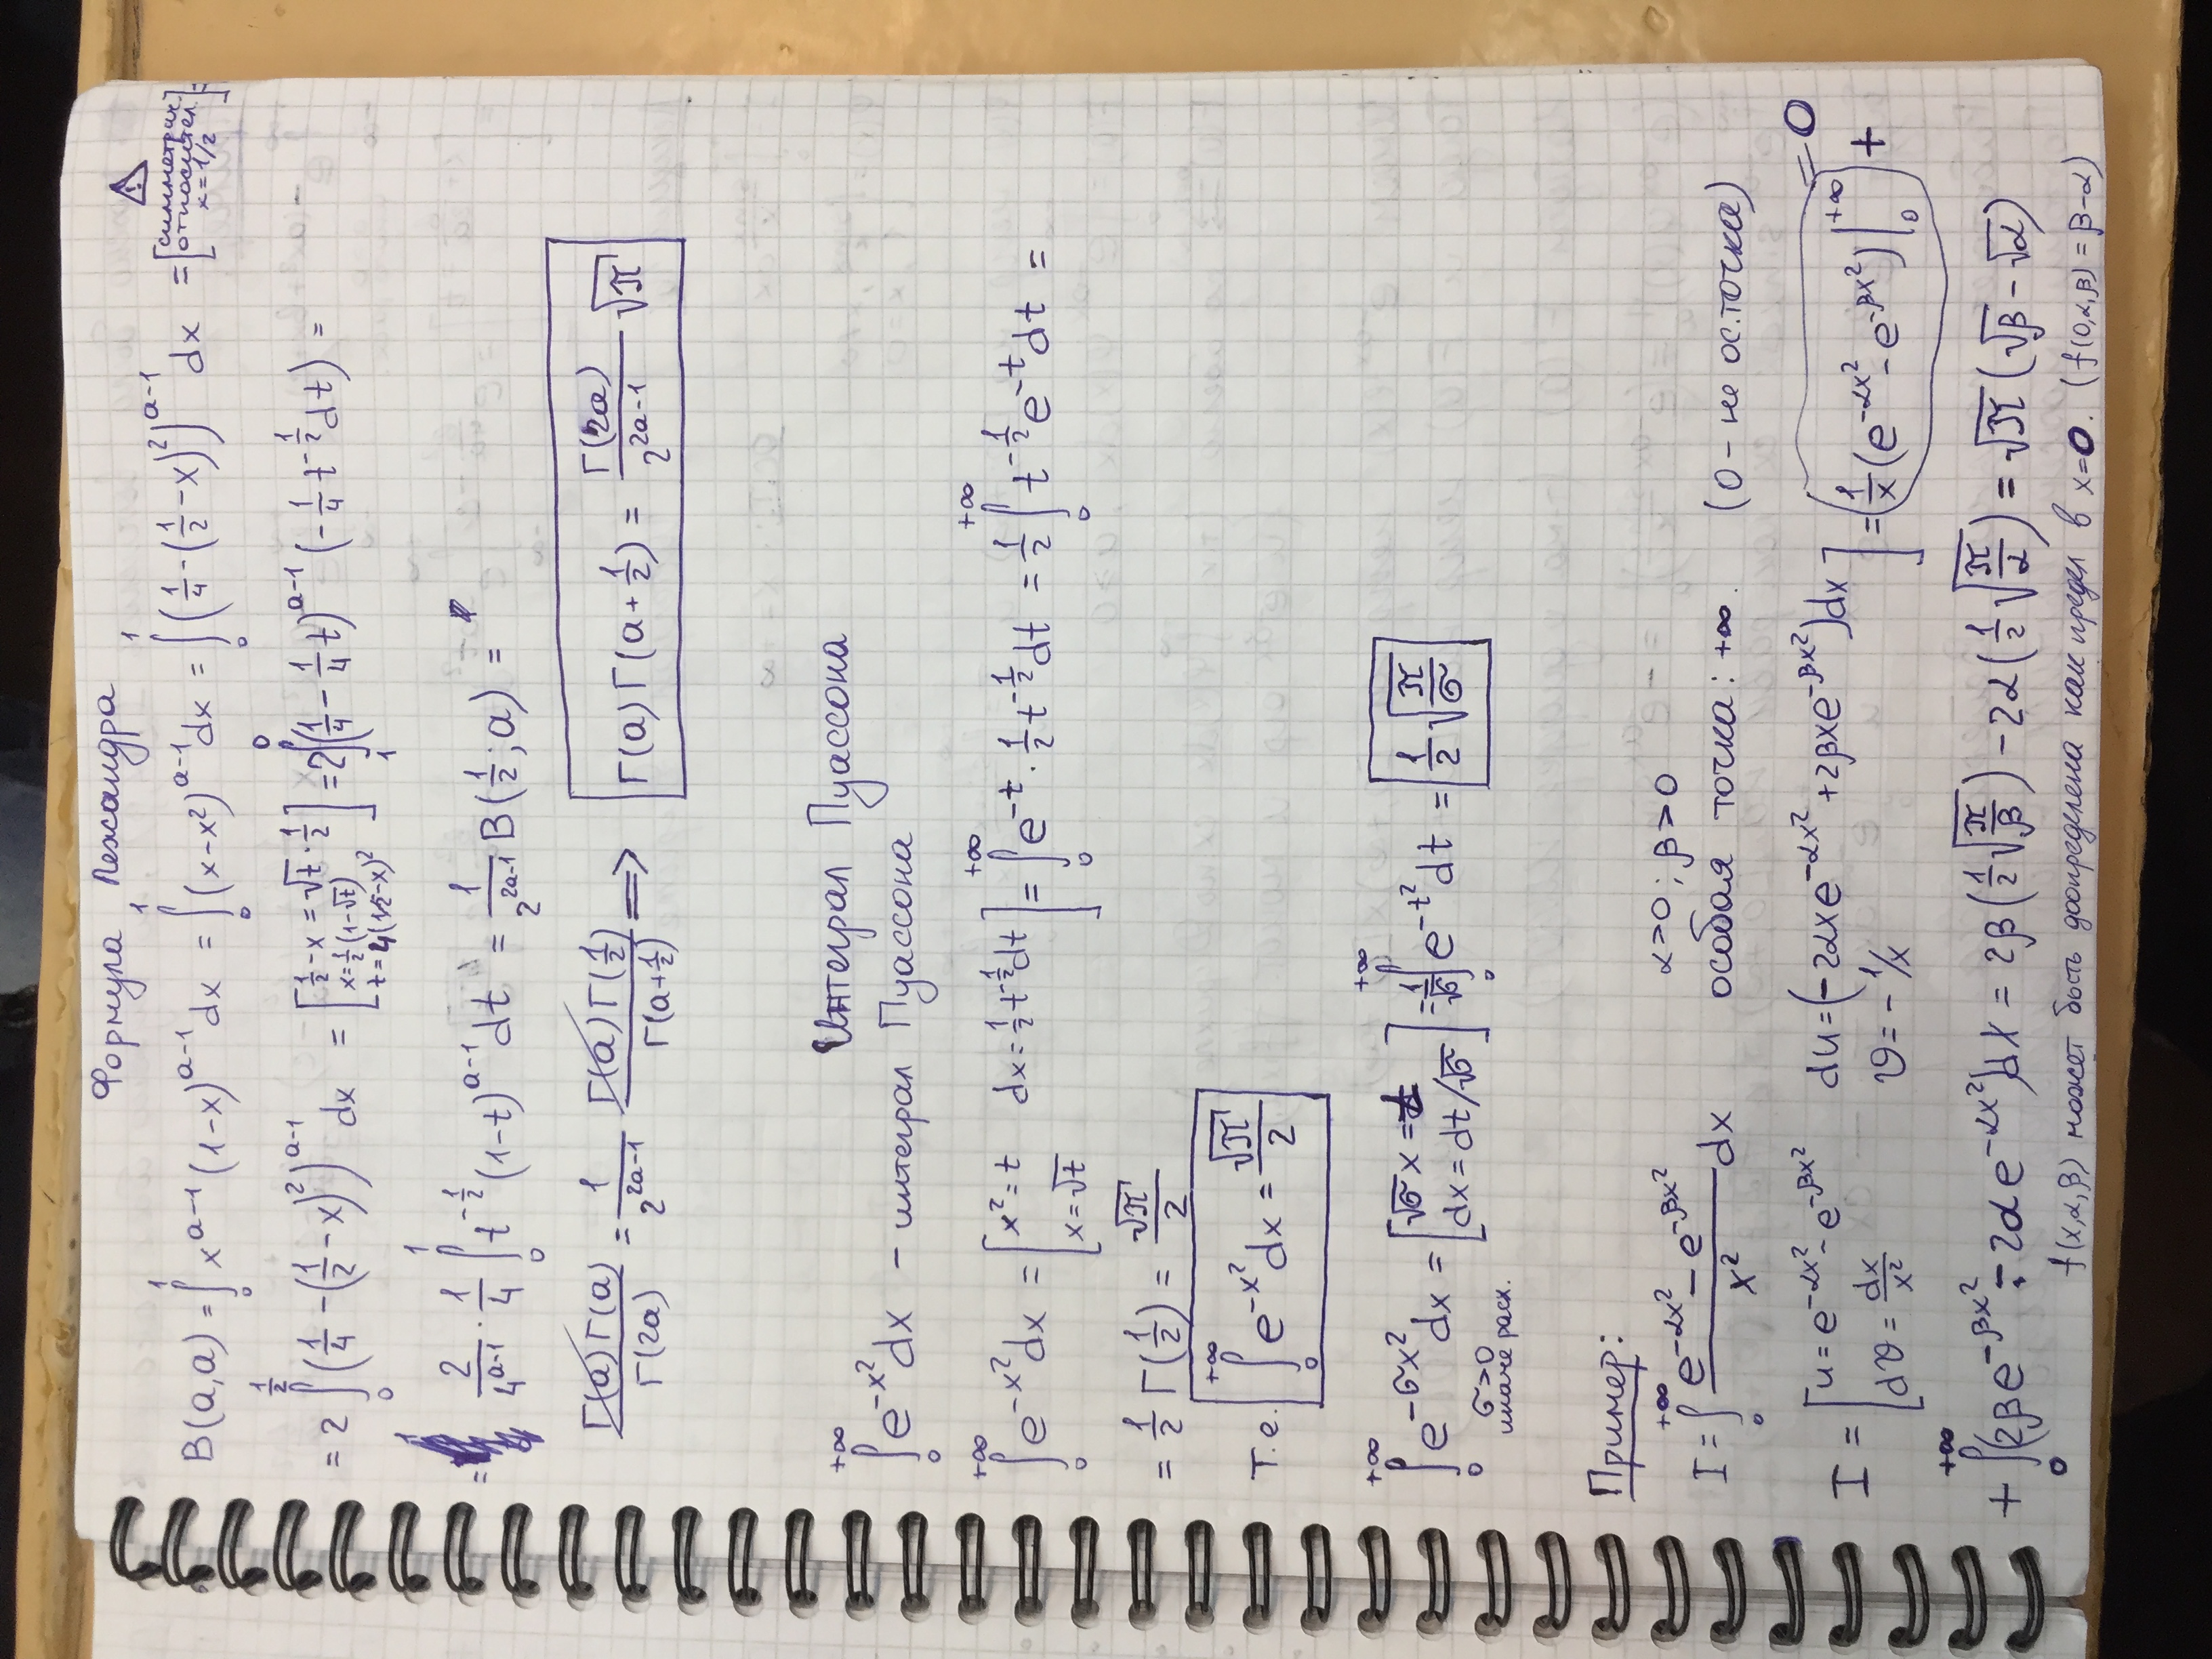 Формула Лежандра
⚠
B(a,a) = ∫₀¹ x^{a-1} (1-x)^{a-1} dx = ∫₀¹ (x-x²)^{a-1} dx = ∫₀¹ (1/4 - (1/2 - x)²)^{a-1} dx = [симметрич. относител. x=1/2] =
= 2 ∫₀^{1/2} (1/4 - (1/2 - x)²)^{a-1} dx = [1/2 - x = √t · 1/2; x = 1/2 (1-√t); t = 4(1/2 - x)²] = 2 ∫₁⁰ (1/4 - 1/4 t)^{a-1} (-1/4 t^{-1/2} dt) =
= 2/4^{a-1} · 1/4 ∫₀¹ t^{-1/2} (1-t)^{a-1} dt = 1/2^{2a-1} B(1/2; a) =
Γ(a)Γ(a)/Γ(2a) = 1/2^{2a-1} Γ(a)Γ(1/2)/Γ(a+1/2) ⟹ Γ(a)Γ(a+1/2) = Γ(2a)/2^{2a-1} √π
Интеграл Пуассона
∫₀^{+∞} e^{-x²} dx - интеграл Пуассона
∫₀^{+∞} e^{-x²} dx = [x² = t; x = √t; dx = 1/2 t^{-1/2} dt] = ∫₀^{+∞} e^{-t} · 1/2 t^{-1/2} dt = 1/2 ∫₀^{+∞} t^{-1/2} e^{-t} dt =
= 1/2 Γ(1/2) = √π/2
т.е. ∫₀^{+∞} e^{-x²} dx = √π/2
∫₀^{+∞} e^{-σx²} dx = [√σ x = t; dx = dt/√σ] = 1/√σ ∫₀^{+∞} e^{-t²} dt = 1/2 √(π/σ)
σ>0
иначе расх.
Пример:
I = ∫₀^{+∞} (e^{-αx²} - e^{-βx²})/x² dx α>0; β>0
особая точка: +∞. (0 - не ос.точка)
I = [u = e^{-αx²} - e^{-βx²}; du = (-2αxe^{-αx²} + 2βxe^{-βx²})dx; dϑ = dx/x²; ϑ = -1/x] = (1/x (e^{-αx²} - e^{-βx²})|₀^{+∞}) + = 0
+ ∫₀^{+∞} (2βe^{-βx²} - 2αe^{-αx²})dx = 2β(1/2 √(π/β)) - 2α(1/2 √(π/α)) = √π(√β - √α)
f(x,α,β) может быть доопределена как предел в x=0. (f(0,α,β) = β-α)